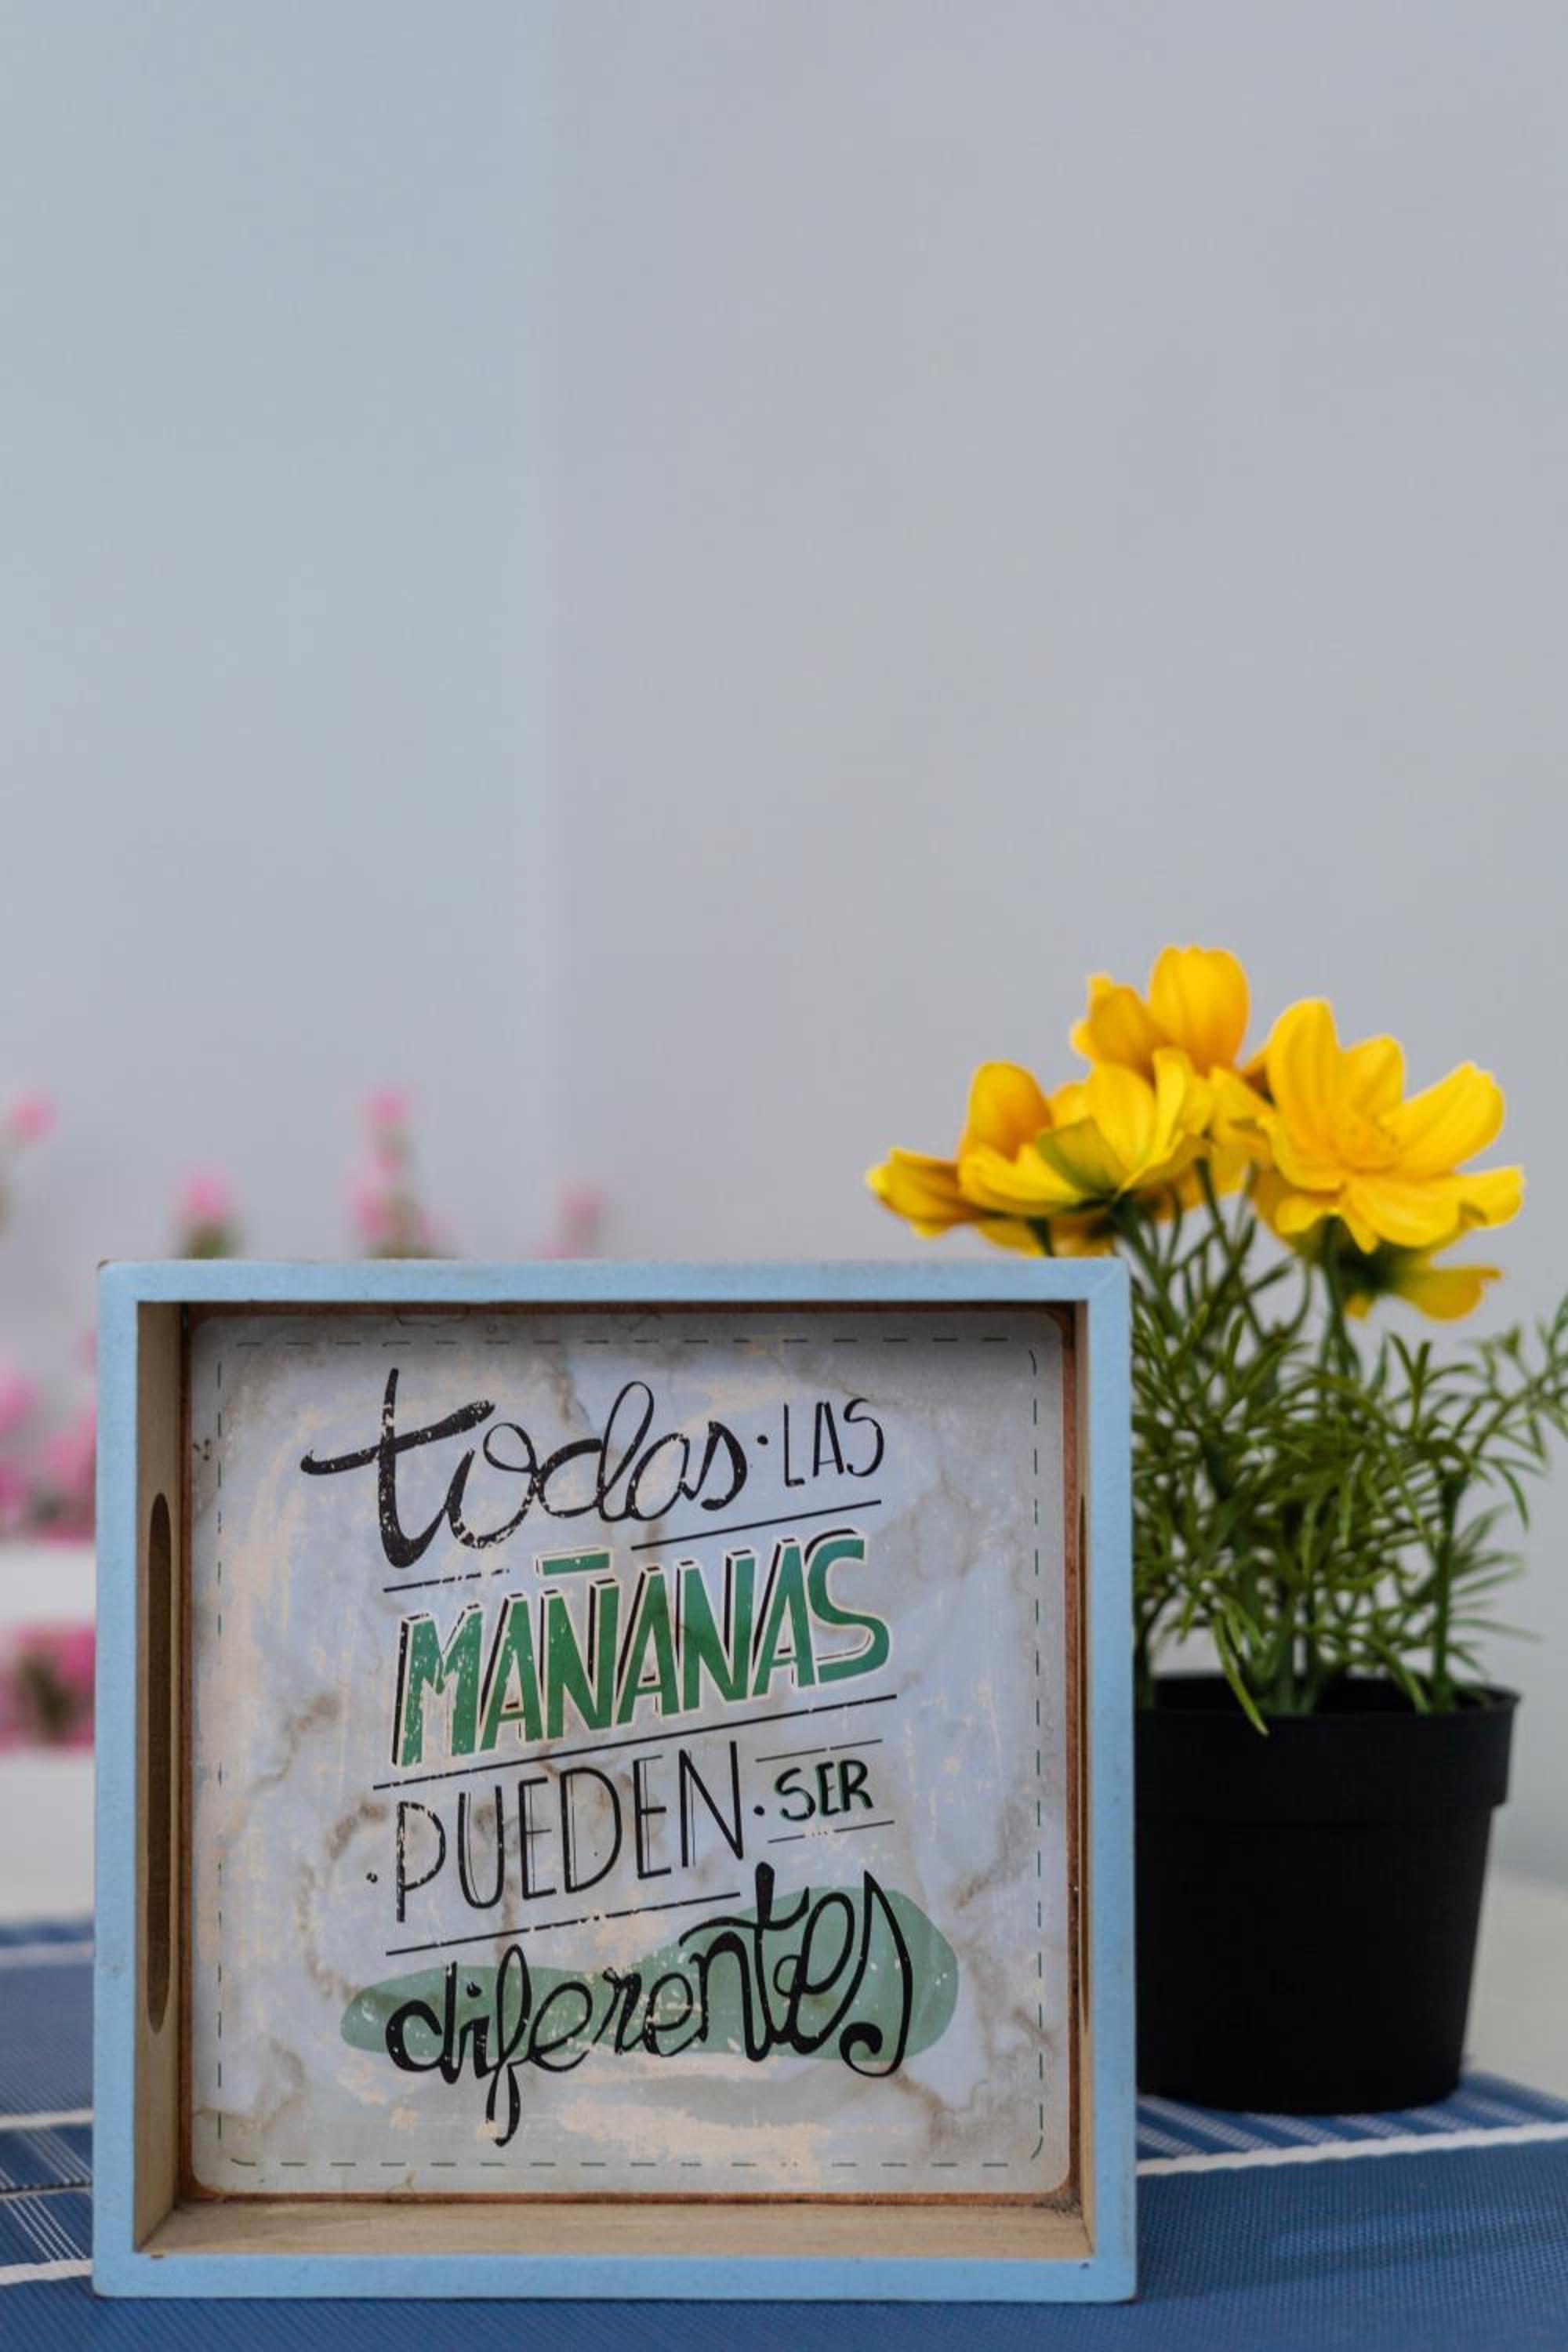 todas · LAS
MAÑANAS
· PUEDEN · SER
diferentes